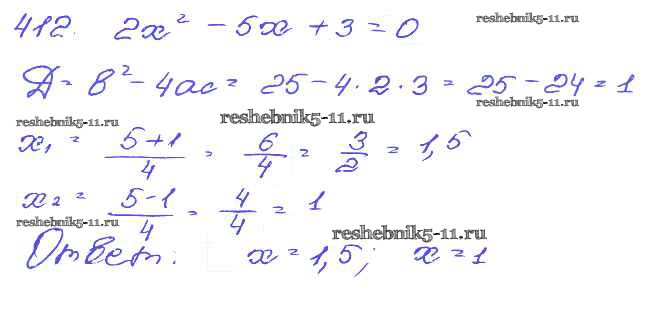 412. 2x² - 5x + 3 = 0
reshebnik5-11.ru
Д = в² - 4ас = 25 - 4 · 2 · 3 = 25 - 24 = 1
reshebnik5-11.ru
reshebnik5-11.ru
reshebnik5-11.ru
x₁ = (5+1)/4 = 6/4 = 3/2 = 1,5
x₂ = (5-1)/4 = 4/4 = 1
reshebnik5-11.ru
reshebnik5-11.ru
Ответ: x = 1,5; x = 1